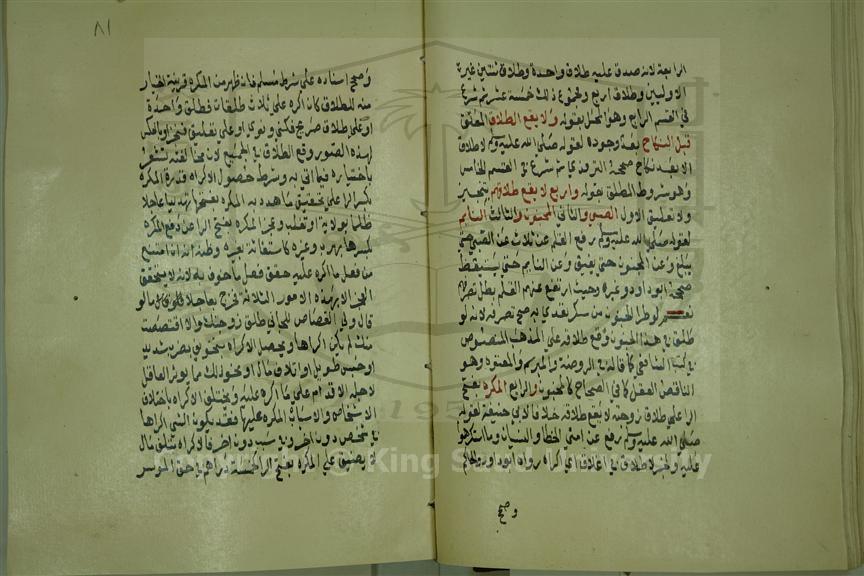 الرابعة لانه صدق عليه طلاق واحدة وطلاق ثنتين غير
الاوليين وطلاق اربع ومجموع ذلك خمسة عشر ثم شرع
في القسم الرابع وهو المحل بقوله ولا يقع الطلاق المعلق
قبل النكاح بعد وجوده لقوله صلى الله عليه وسلم لا طلاق
الا بعد نكاح صححه الترمذي ثم شرع في القسم الخامس
وهو شروط المطلق بقوله واربع لا يقع طلاقهم بتنجيز
ولا تعليق الاول الصبي والثاني المجنون والثالث النايم
لقوله صلى الله عليه وسلم رفع القلم عن ثلاث عن الصبي حتى
يبلغ وعن المجنون حتى يفيق وعن النايم حتى يستيقظ
صححه ابو داود وغيره وحيث ارتفع عنهم القلم بطل تصرفهم
نعم لو طرا الجنون من سكر تعدى به صح تصرفه لانه لو
طلق في هذا الجنون وقع طلاقه على المذهب المنصوص
في كتب الشافعي كما قاله في الروضة والمبرسم والمعتوه وهو
الناقص العقل كما في الصحاح كالمجنون والرابع المكره بفتح
الرا على طلاق زوجته لا يقع طلاقه خلافا لابي حنيفة لقوله
صلى الله عليه وسلم رفع عن امتي الخطا والنسيان وما استكرهوا
عليه ولخبر لا طلاق في اغلاق اي اكراه رواه ابو داود والحاكم
وصح
٨١
وصح اسناده على شرط مسلم فان ظهر من المكره قرينة اختيار
منه للطلاق كان اكره على ثلاث طلقات فطلق واحدة
او على طلاق صريح فكنى ونوى او على تعليق فنجز او بالعكس
لهذه الصور وقع الطلاق في الجميع لان مخالفته تشعر
باختياره فيما اتى به وشرط حصول الاكراه قدرة المكره
بكسر الرا على تحقيق ما هدد به المكره بفتحها تهديدا عاجلا
ظلما بولاية او تغلب وعجز المكره بفتح الرا عن دفع المكره
بكسرها بهرب وغيره كاستغاثة بغيره وظنه انه ان امتنع
من فعل ما اكره عليه حقق فعل ما خوفه به لانه لا يتحقق
العجز الا بهذه الامور الثلاثة فخرج بعاجلا
قال ولي القصاص للجاني طلق زوجتك والا اقتصصت
منك لم يكن اكراها ويحصل الاكراه بتخويف بضرب شديد
او حبس طويل او اتلاف مال او نحو ذلك مما يوثر العاقل
لاجله الاقدام على ما اكره عليه ويختلف الاكراه باختلاف
الاشخاص والاسباب المكره عليها فقد يكون الشي اكراها
في شخص دون اخر وفي سبب دون اخر فالاكراه باتلاف مال
لا يضيق على المكره بفتح الرا كخمسة دراهم في حق الموسر
Copyright © King Saud University
1957